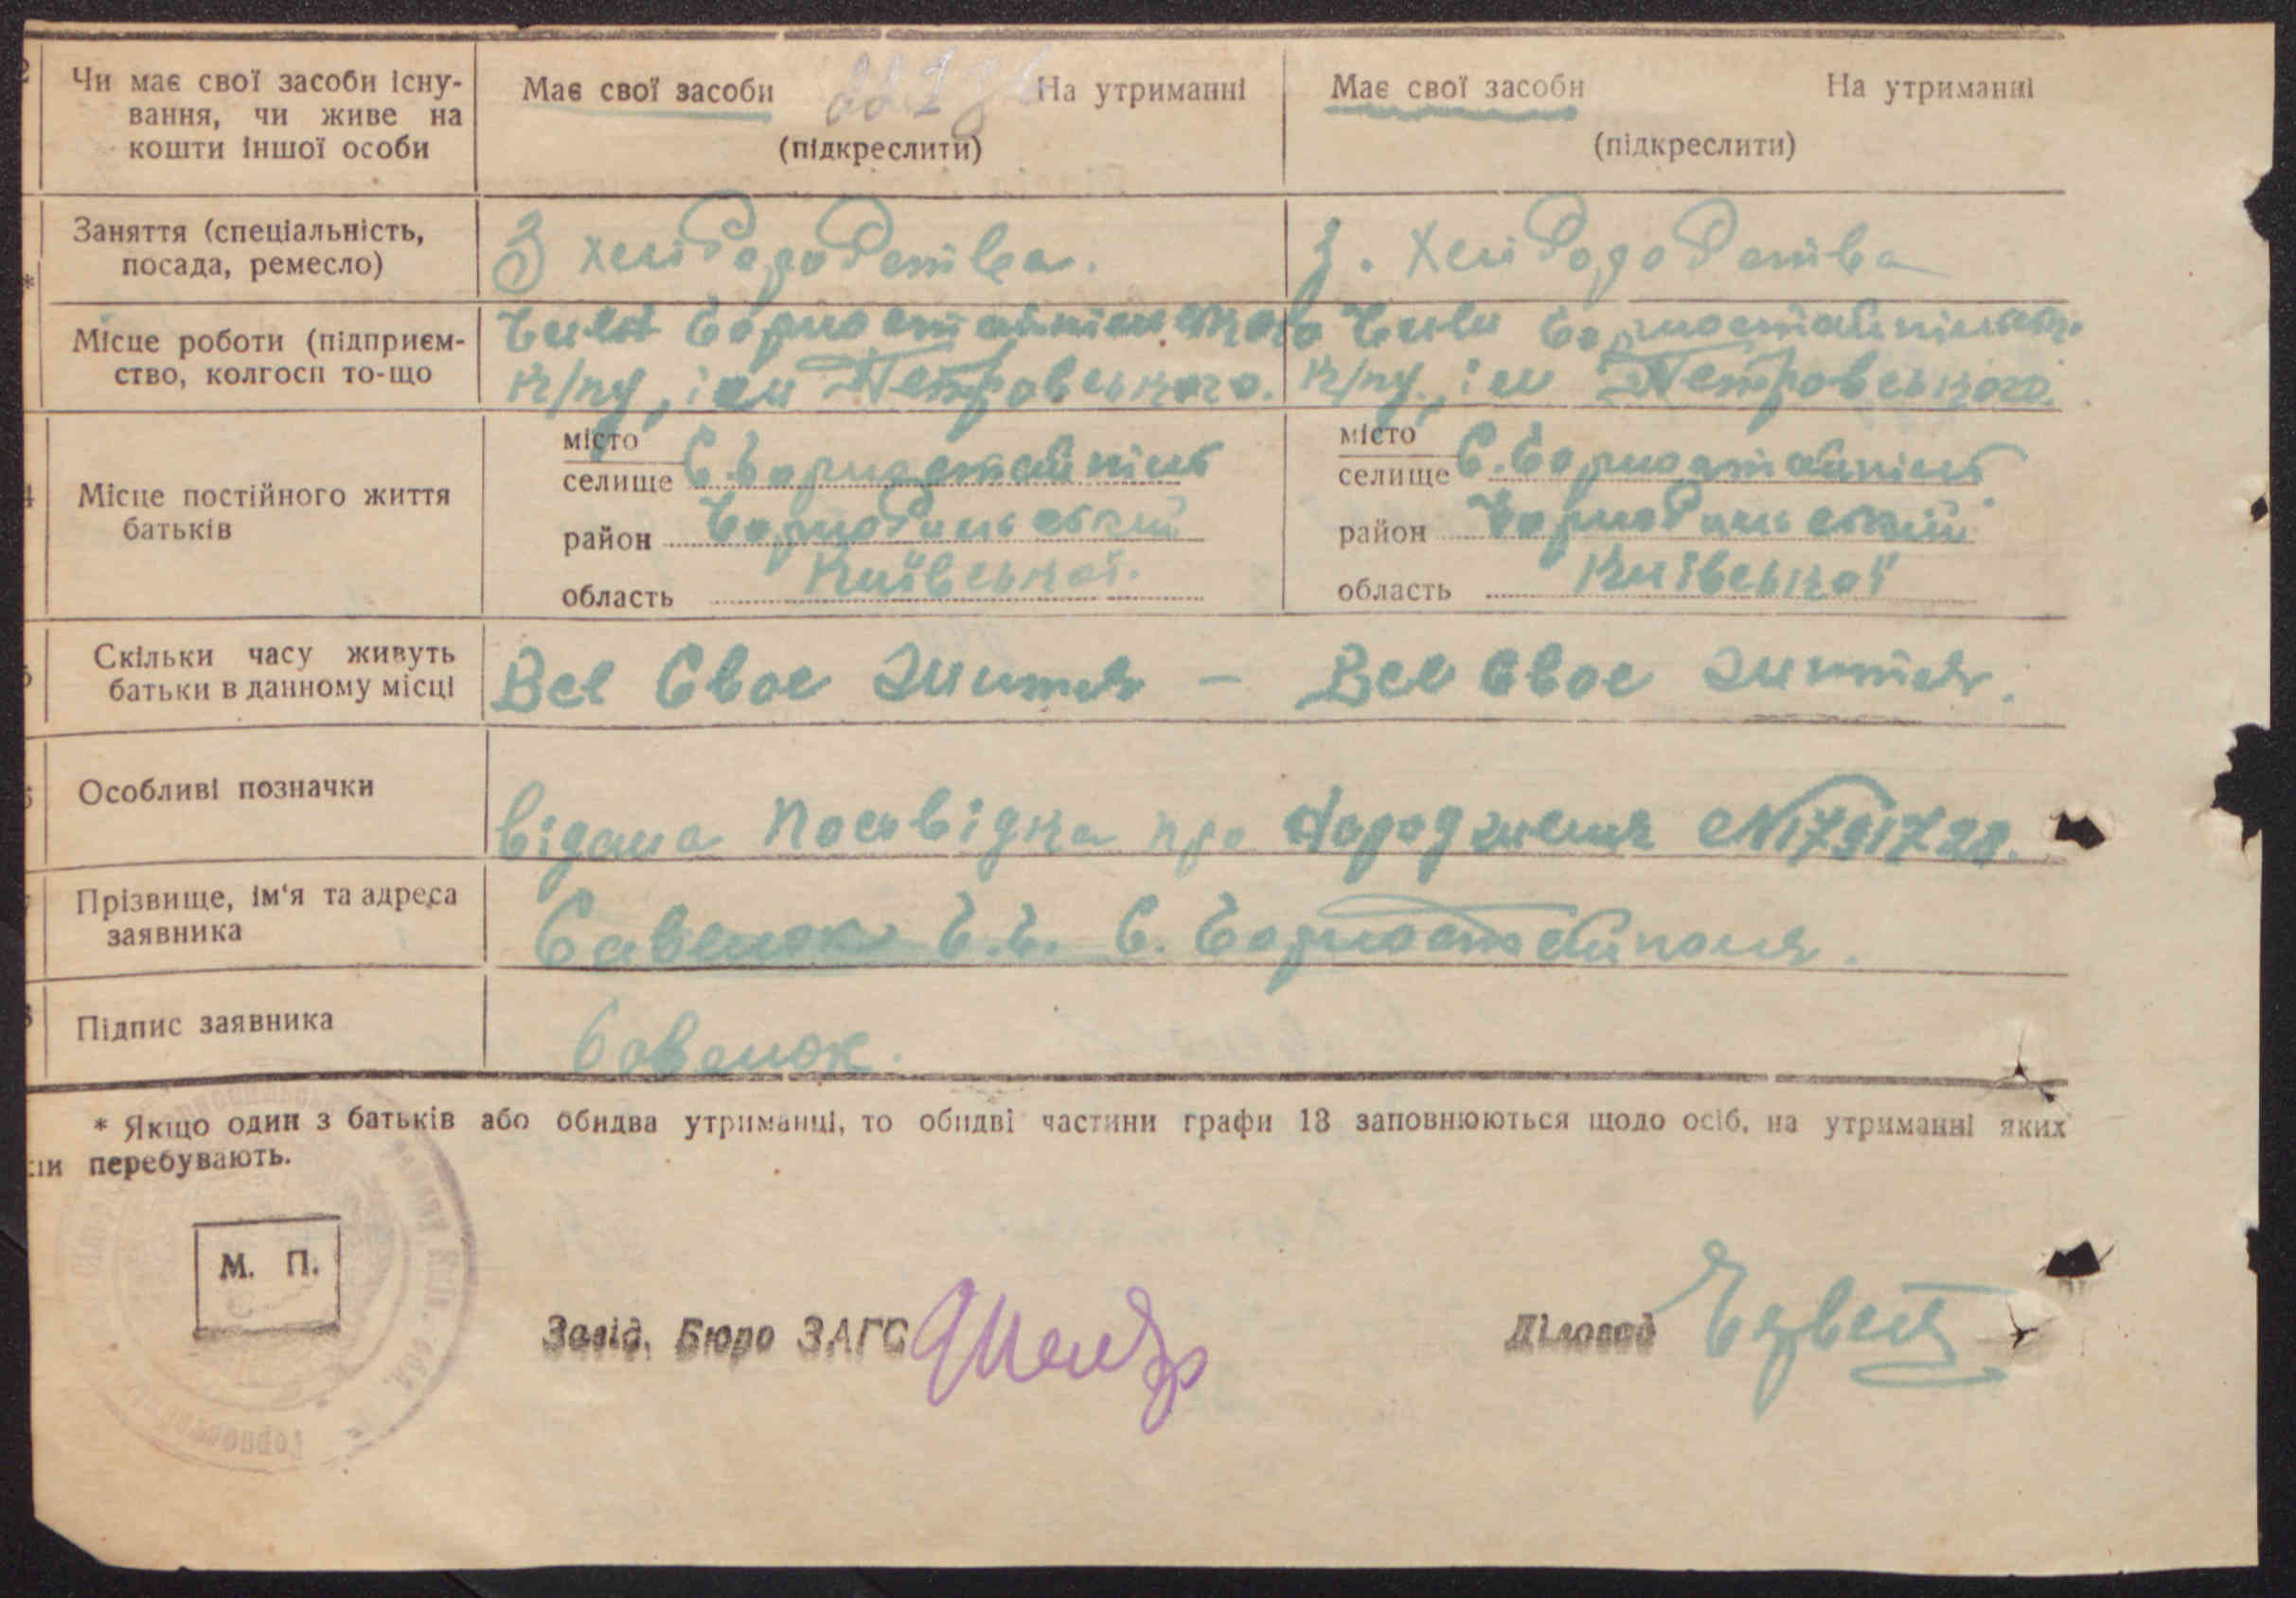 Чи має свої засоби існу-
вання, чи живе на
кошти іншої особи
Має свої засоби На утриманні
(підкреслити)
Має свої засоби На утриманні
(підкреслити)
Заняття (спеціальність,
посада, ремесло)
З хліборобства.
З. Хліборобства
Місце роботи (підприєм-
ство, колгосп то-що
Горностайпільського
к/пу, ім Петровського.
к/пу, ім Петровського.
4
Місце постійного життя
батьків
місто
селище С. Горностайпіль
район Горностайський
область Київської.
місто
селище С. Горностайпіль
район
область Київської
Скільки часу живуть
батьки в данному місці
Все Своє життя – Все своє життя.
Особливі позначки
Відана посвідка про народження №1791728.
Прізвище, ім‘я та адреса
заявника
Савенок Г.Г. С. Горностайполя.
Підпис заявника
Савенок.
* Якщо один з батьків або обидва утриманці, то обидві частини графи 13 заповнюються щодо осіб, на утриманні яких
перебувають.
М. П.
Завід. Бюро ЗАГС
Діловод